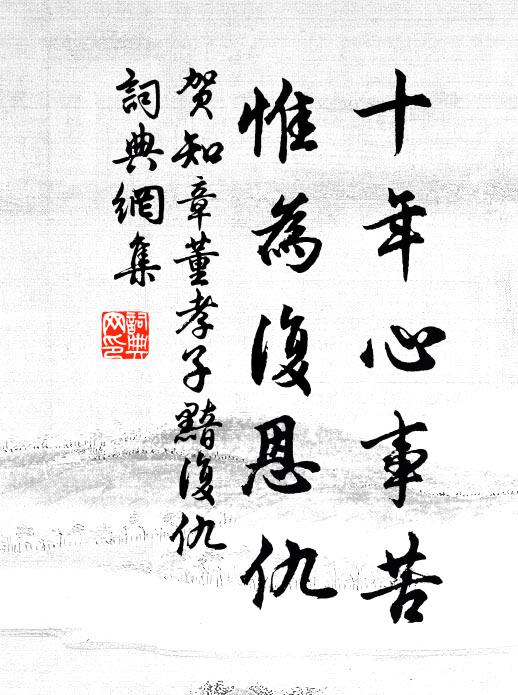 十年心事苦
惟為復恩仇
賀知章董孝子黯復仇
詞典網集
詞典
网印